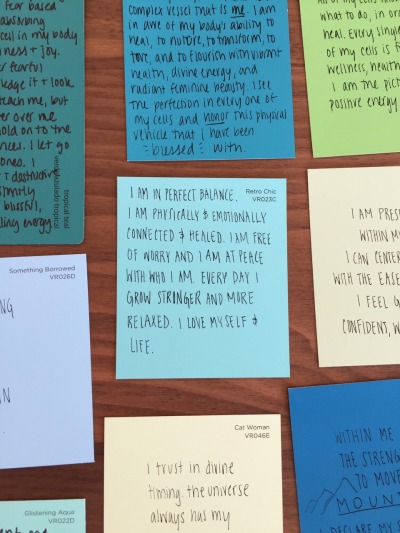 fear based
absorbing
cell in my body
ness + joy.
er fearful
ledge it + look
teach me, but
er over me
hold on to the
nces. I let go
ones. I
+ destructive
stantly
blissful,
ling energy.
tropical teal
verde/azulado tropical
complex vessel that is me. I am
in awe of my body's ability to
heal, to nurture, to transform, to
love, and to flourish with vibrant
health, divine energy, and
radiant feminine beauty. I see
the perfection in every one of
my cells and honor this physical
vehicle that I have been
blessed with.
what to do, in or
heal. Every single
of my cells is f
wellness, health
I am the pict
positive energy
Retro Chic
VR023C
I AM IN PERFECT BALANCE.
I AM PHYSICALLY & EMOTIONALLY
CONNECTED & HEALED. I AM FREE
OF WORRY AND I AM AT PEACE
WITH WHO I AM. EVERY DAY I
GROW STRONGER AND MORE
RELAXED. I LOVE MYSELF &
LIFE.
I AM PRES
WITHIN M
I CAN CENTER
WITH THE EASE
I FEEL G
CONFIDENT, W
Something Borrowed
VR026D
NG
N
Cat Woman
VR046E
I trust in divine
timing. the universe
always has my
WITHIN ME
THE STRENG
TO MOVE
MOUNT
I DECLARE MY S
Glistening Aqua
VR022D